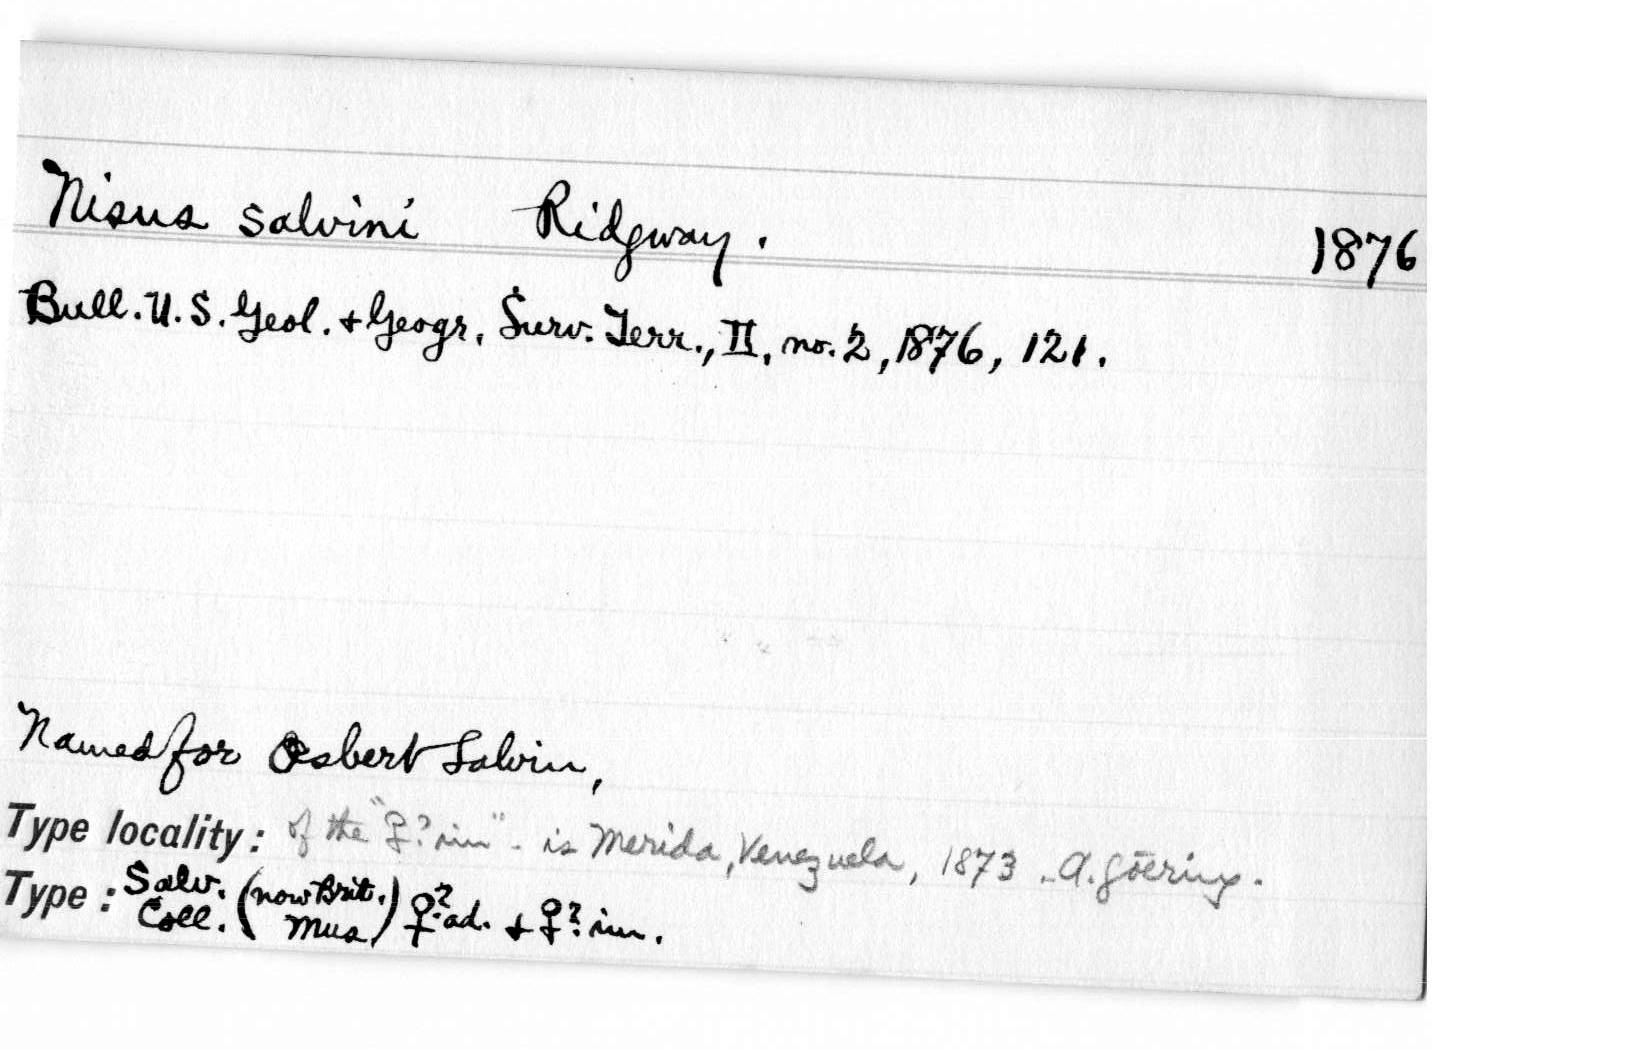 Nisus salvini Ridgway. 1876
Bull. U. S. Geol. + Geogr. Surv. Terr., II, no. 2, 1876, 121.
Named for Osbert Salvin,
Type locality: of the "♀? im" - is Merida, Venezuela, 1873 - A. Göering.
Type: Salv. Coll. (now Brit. Mus) ♀? ad. + ♀? im.